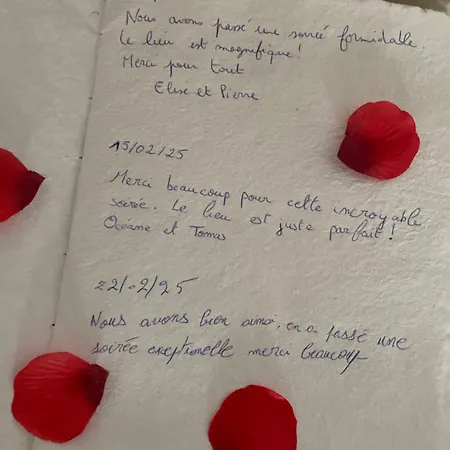 Nous avons passé une soirée formidable
Le lieu est magnifique !
Merci pour tout
Elise et Pierre
15/02/25
Merci beaucoup pour cette incroyable
soirée. Le lieu est juste parfait !
Océane et Tomas
22/02/25
Nous avons bien aimé, on a passé une
soirée exeptionelle merci beaucoup